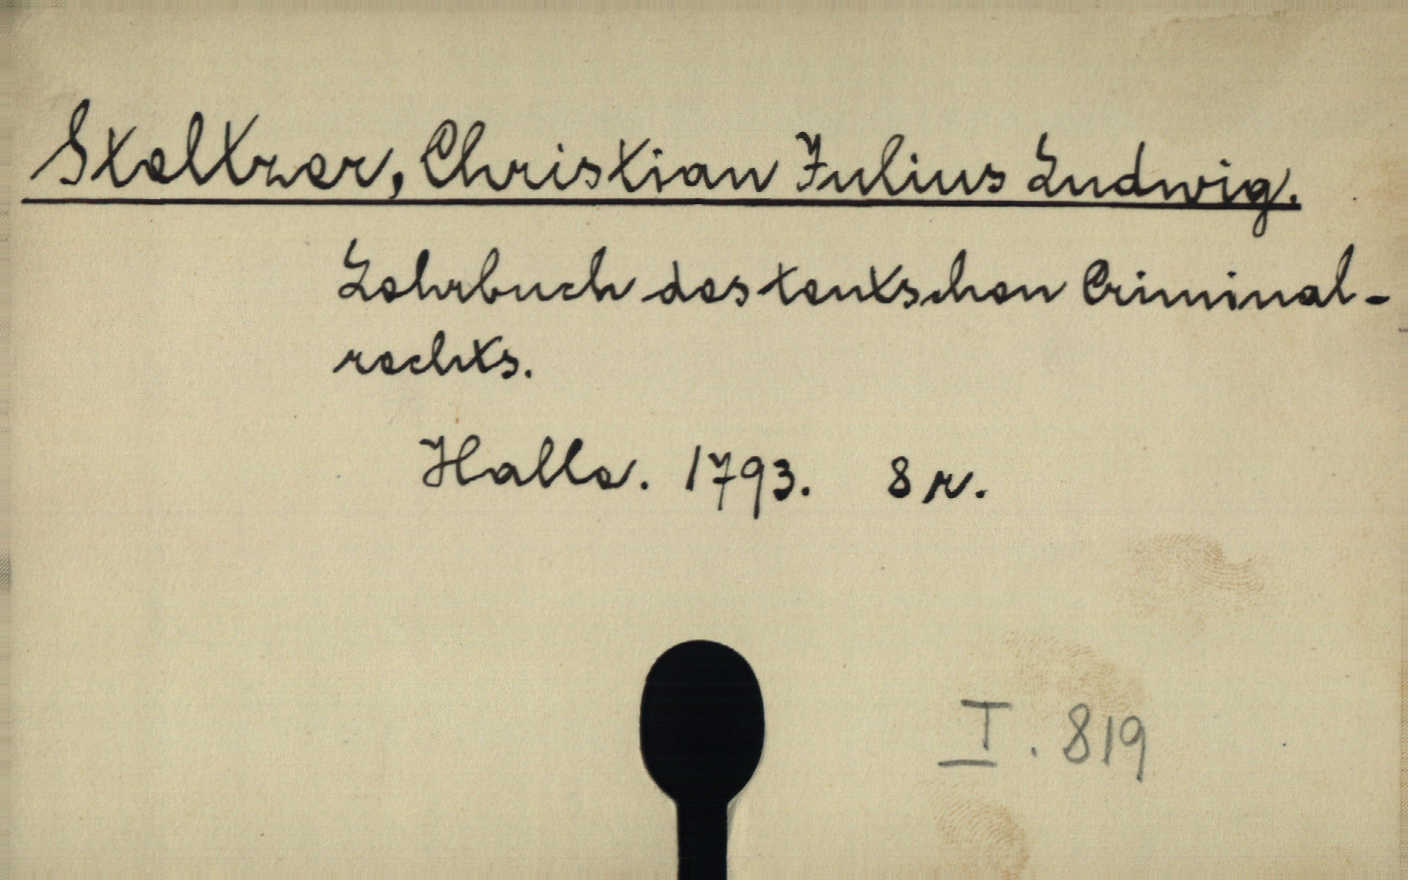 Steltzer, Christian Julius Ludwig.
Lehrbuch des teutschen Criminal-
rechts.
Halle. 1793. 8 r.
I. 819